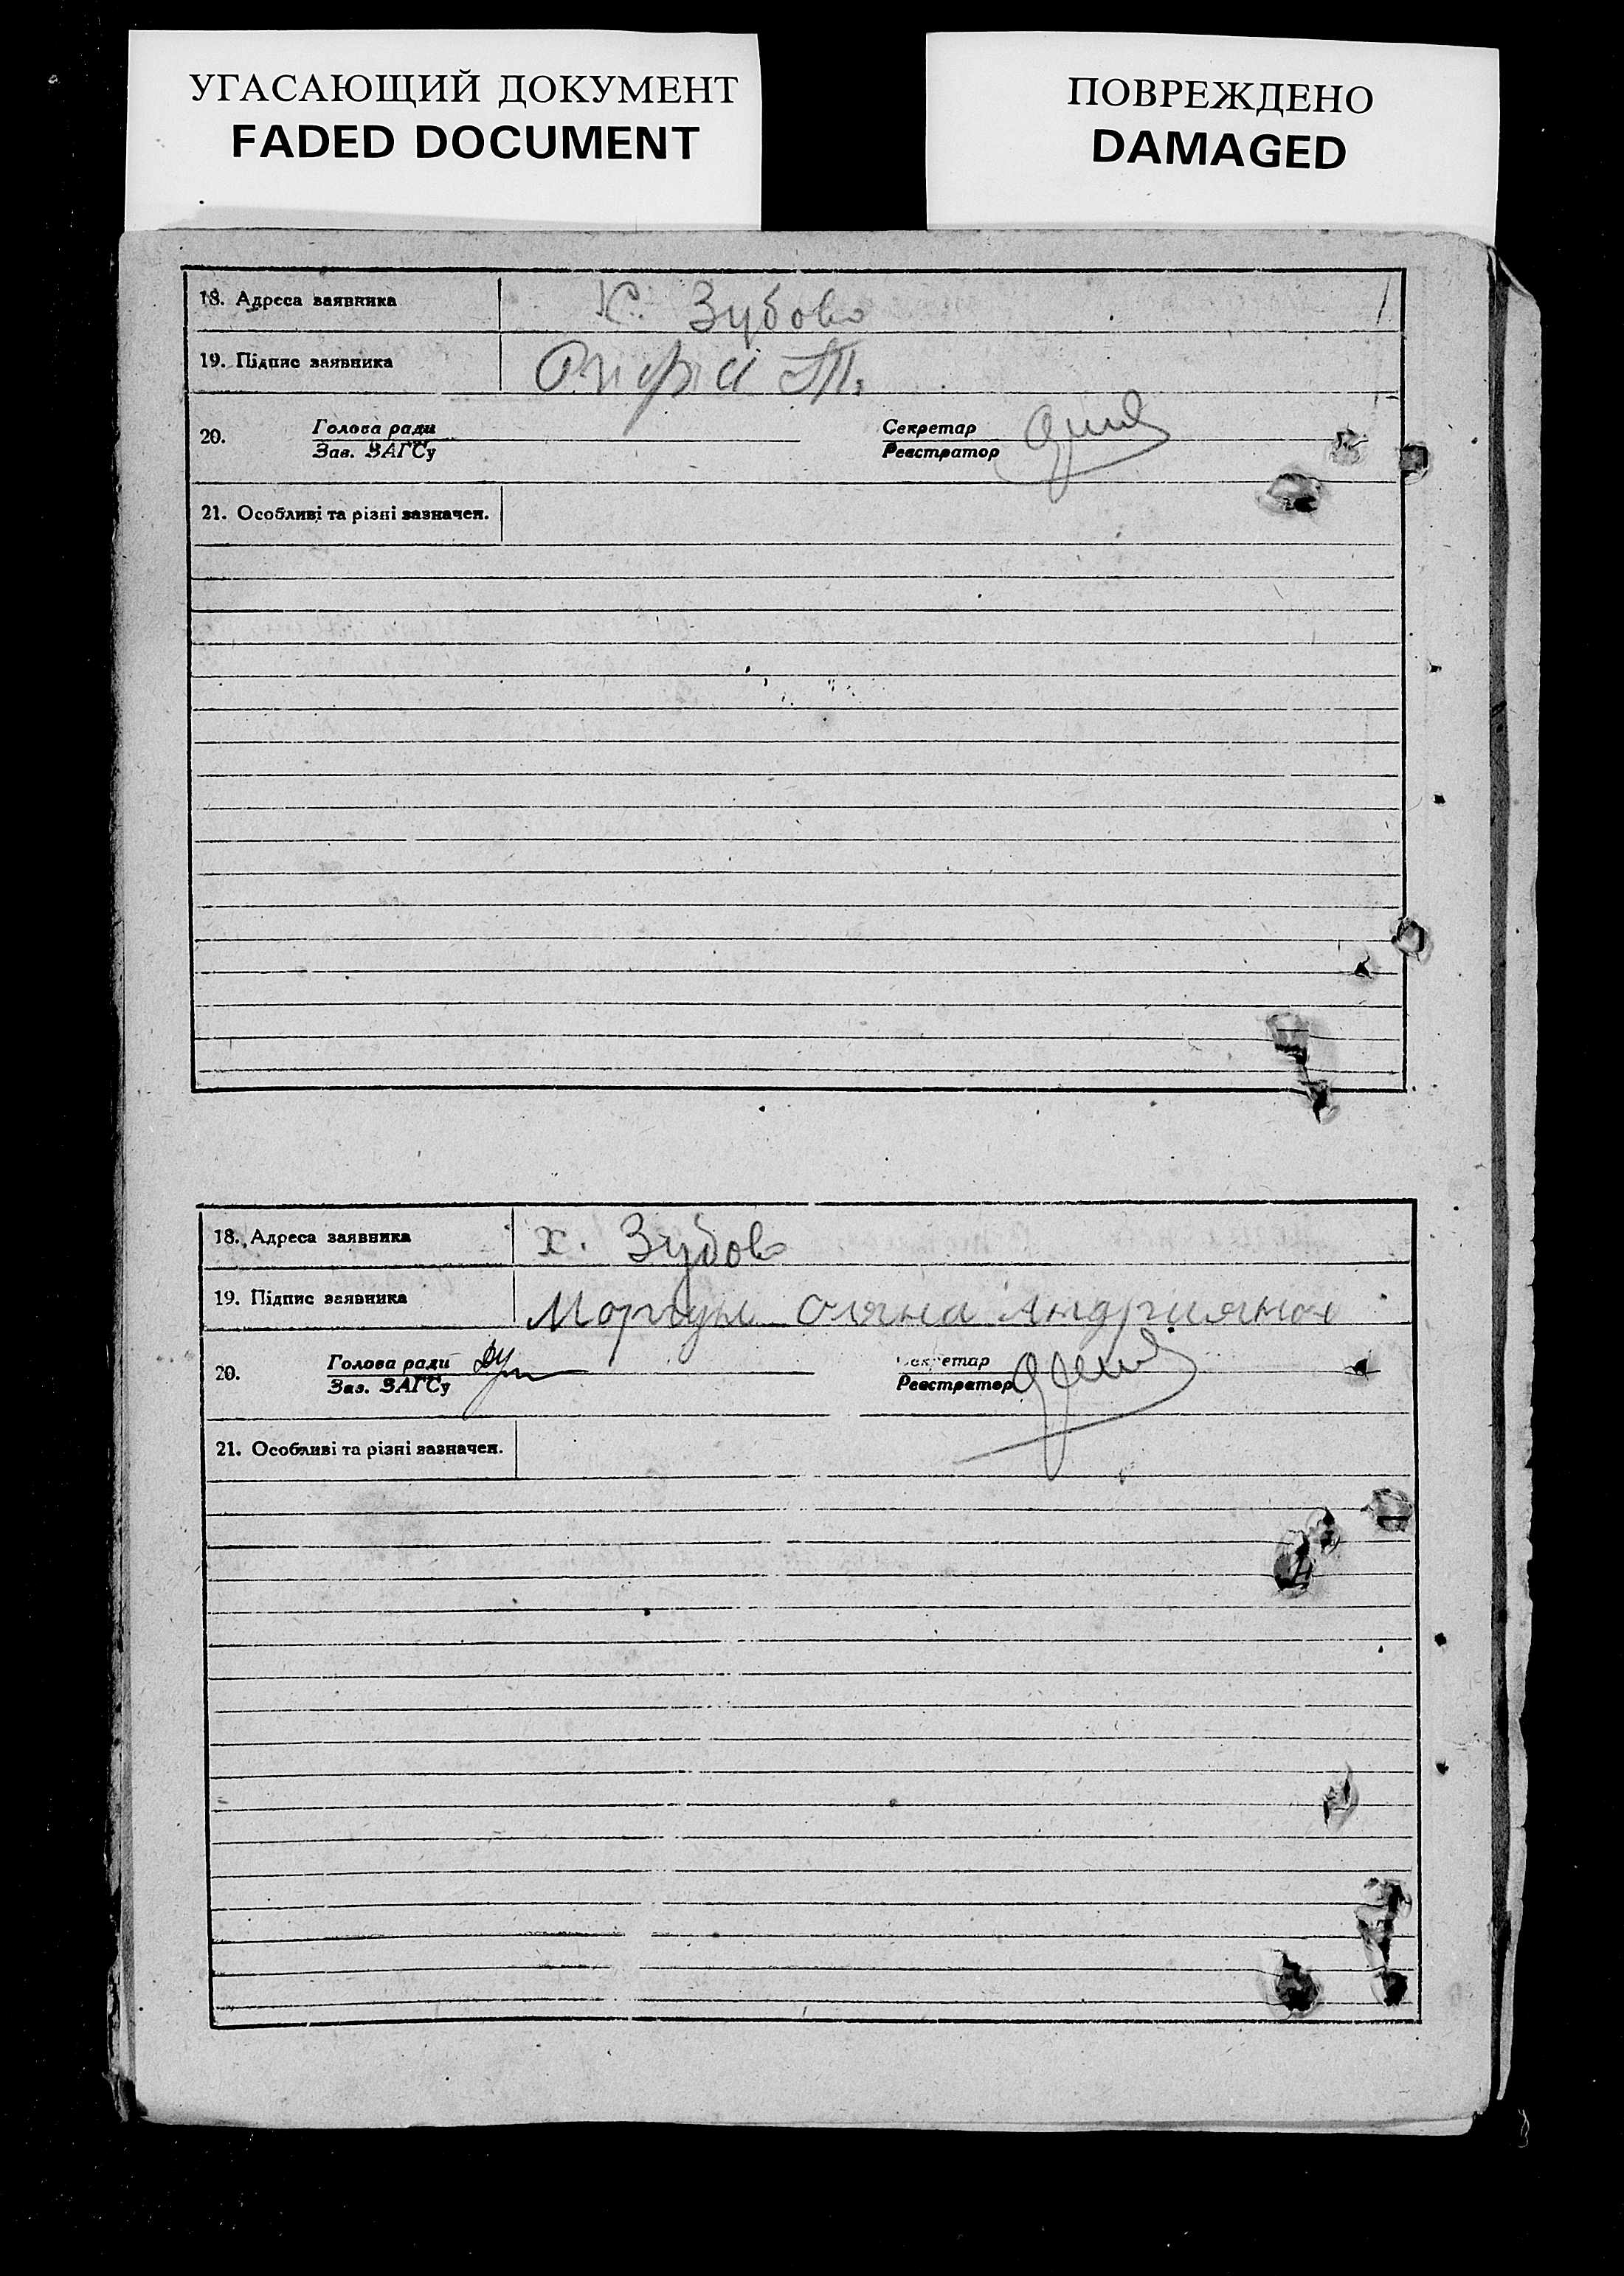 УГАСАЮЩИЙ ДОКУМЕНТ
FADED DOCUMENT
ПОВРЕЖДЕНО
DAMAGED
18. Адреса заявника х. Зубово
19. Підпис заявника
20. Голова ради
Зав. ЗАГСу
Секретар
Реєстратор
21. Особливі та різні зазначен.
18. Адреса заявника х. Зубово
19. Підпис заявника Моргун Оляна Андриянов
20. Голова ради
Зав. ЗАГСу
Секретар
Реєстратор
21. Особливі та різні зазначен.